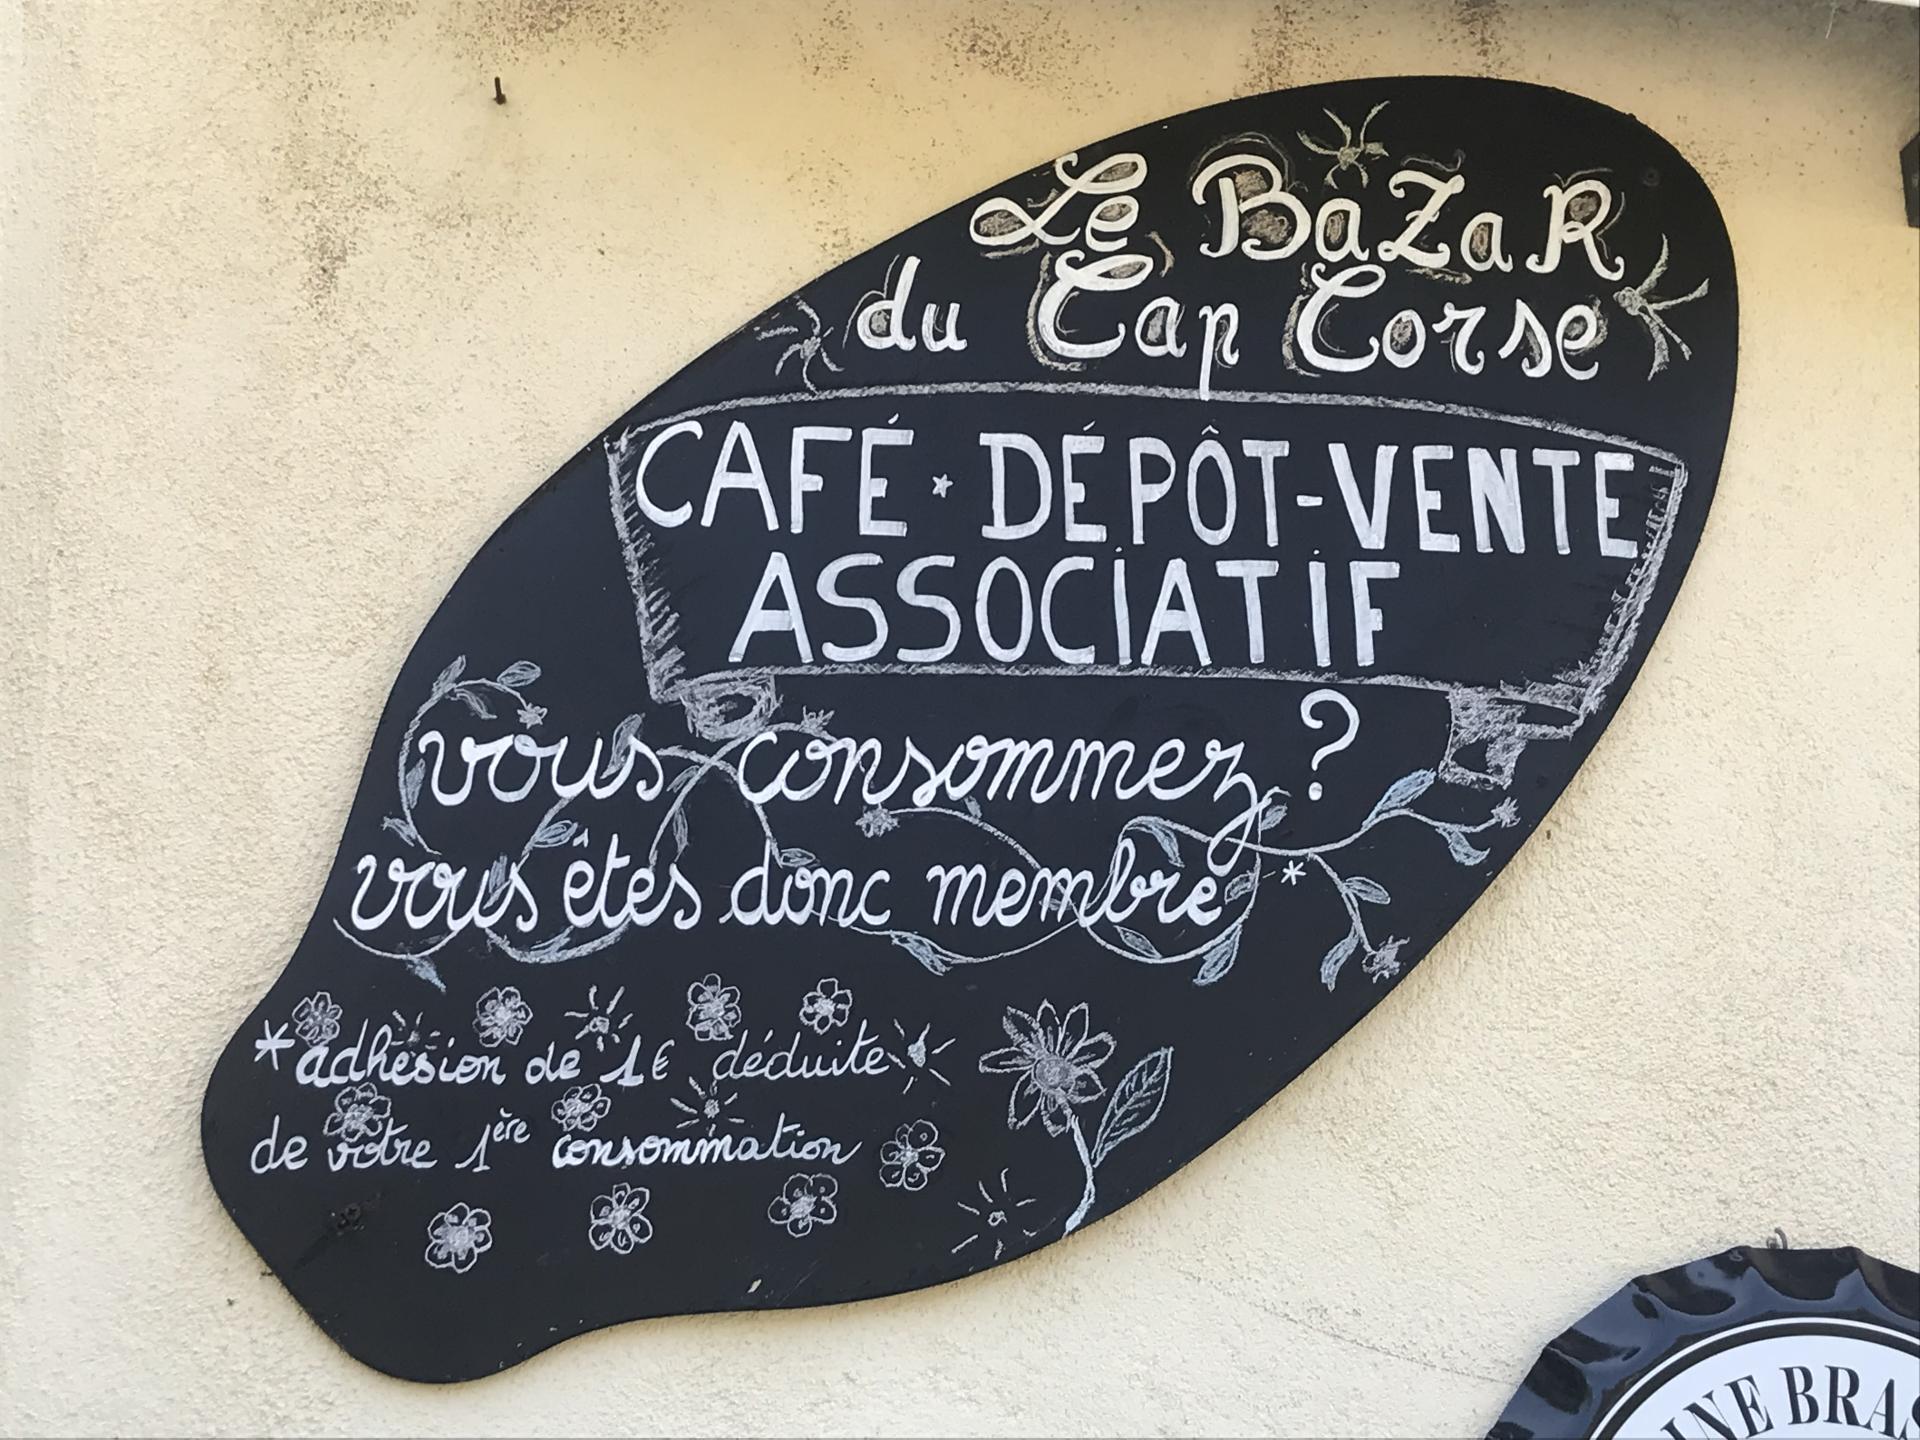 Le BaZaR
du Cap Corse
CAFÉ * DÉPÔT-VENTE
ASSOCIATIF
vous consommez ?
vous êtes donc membre *
* adhésion de 1€ déduite
de votre 1ère consommation